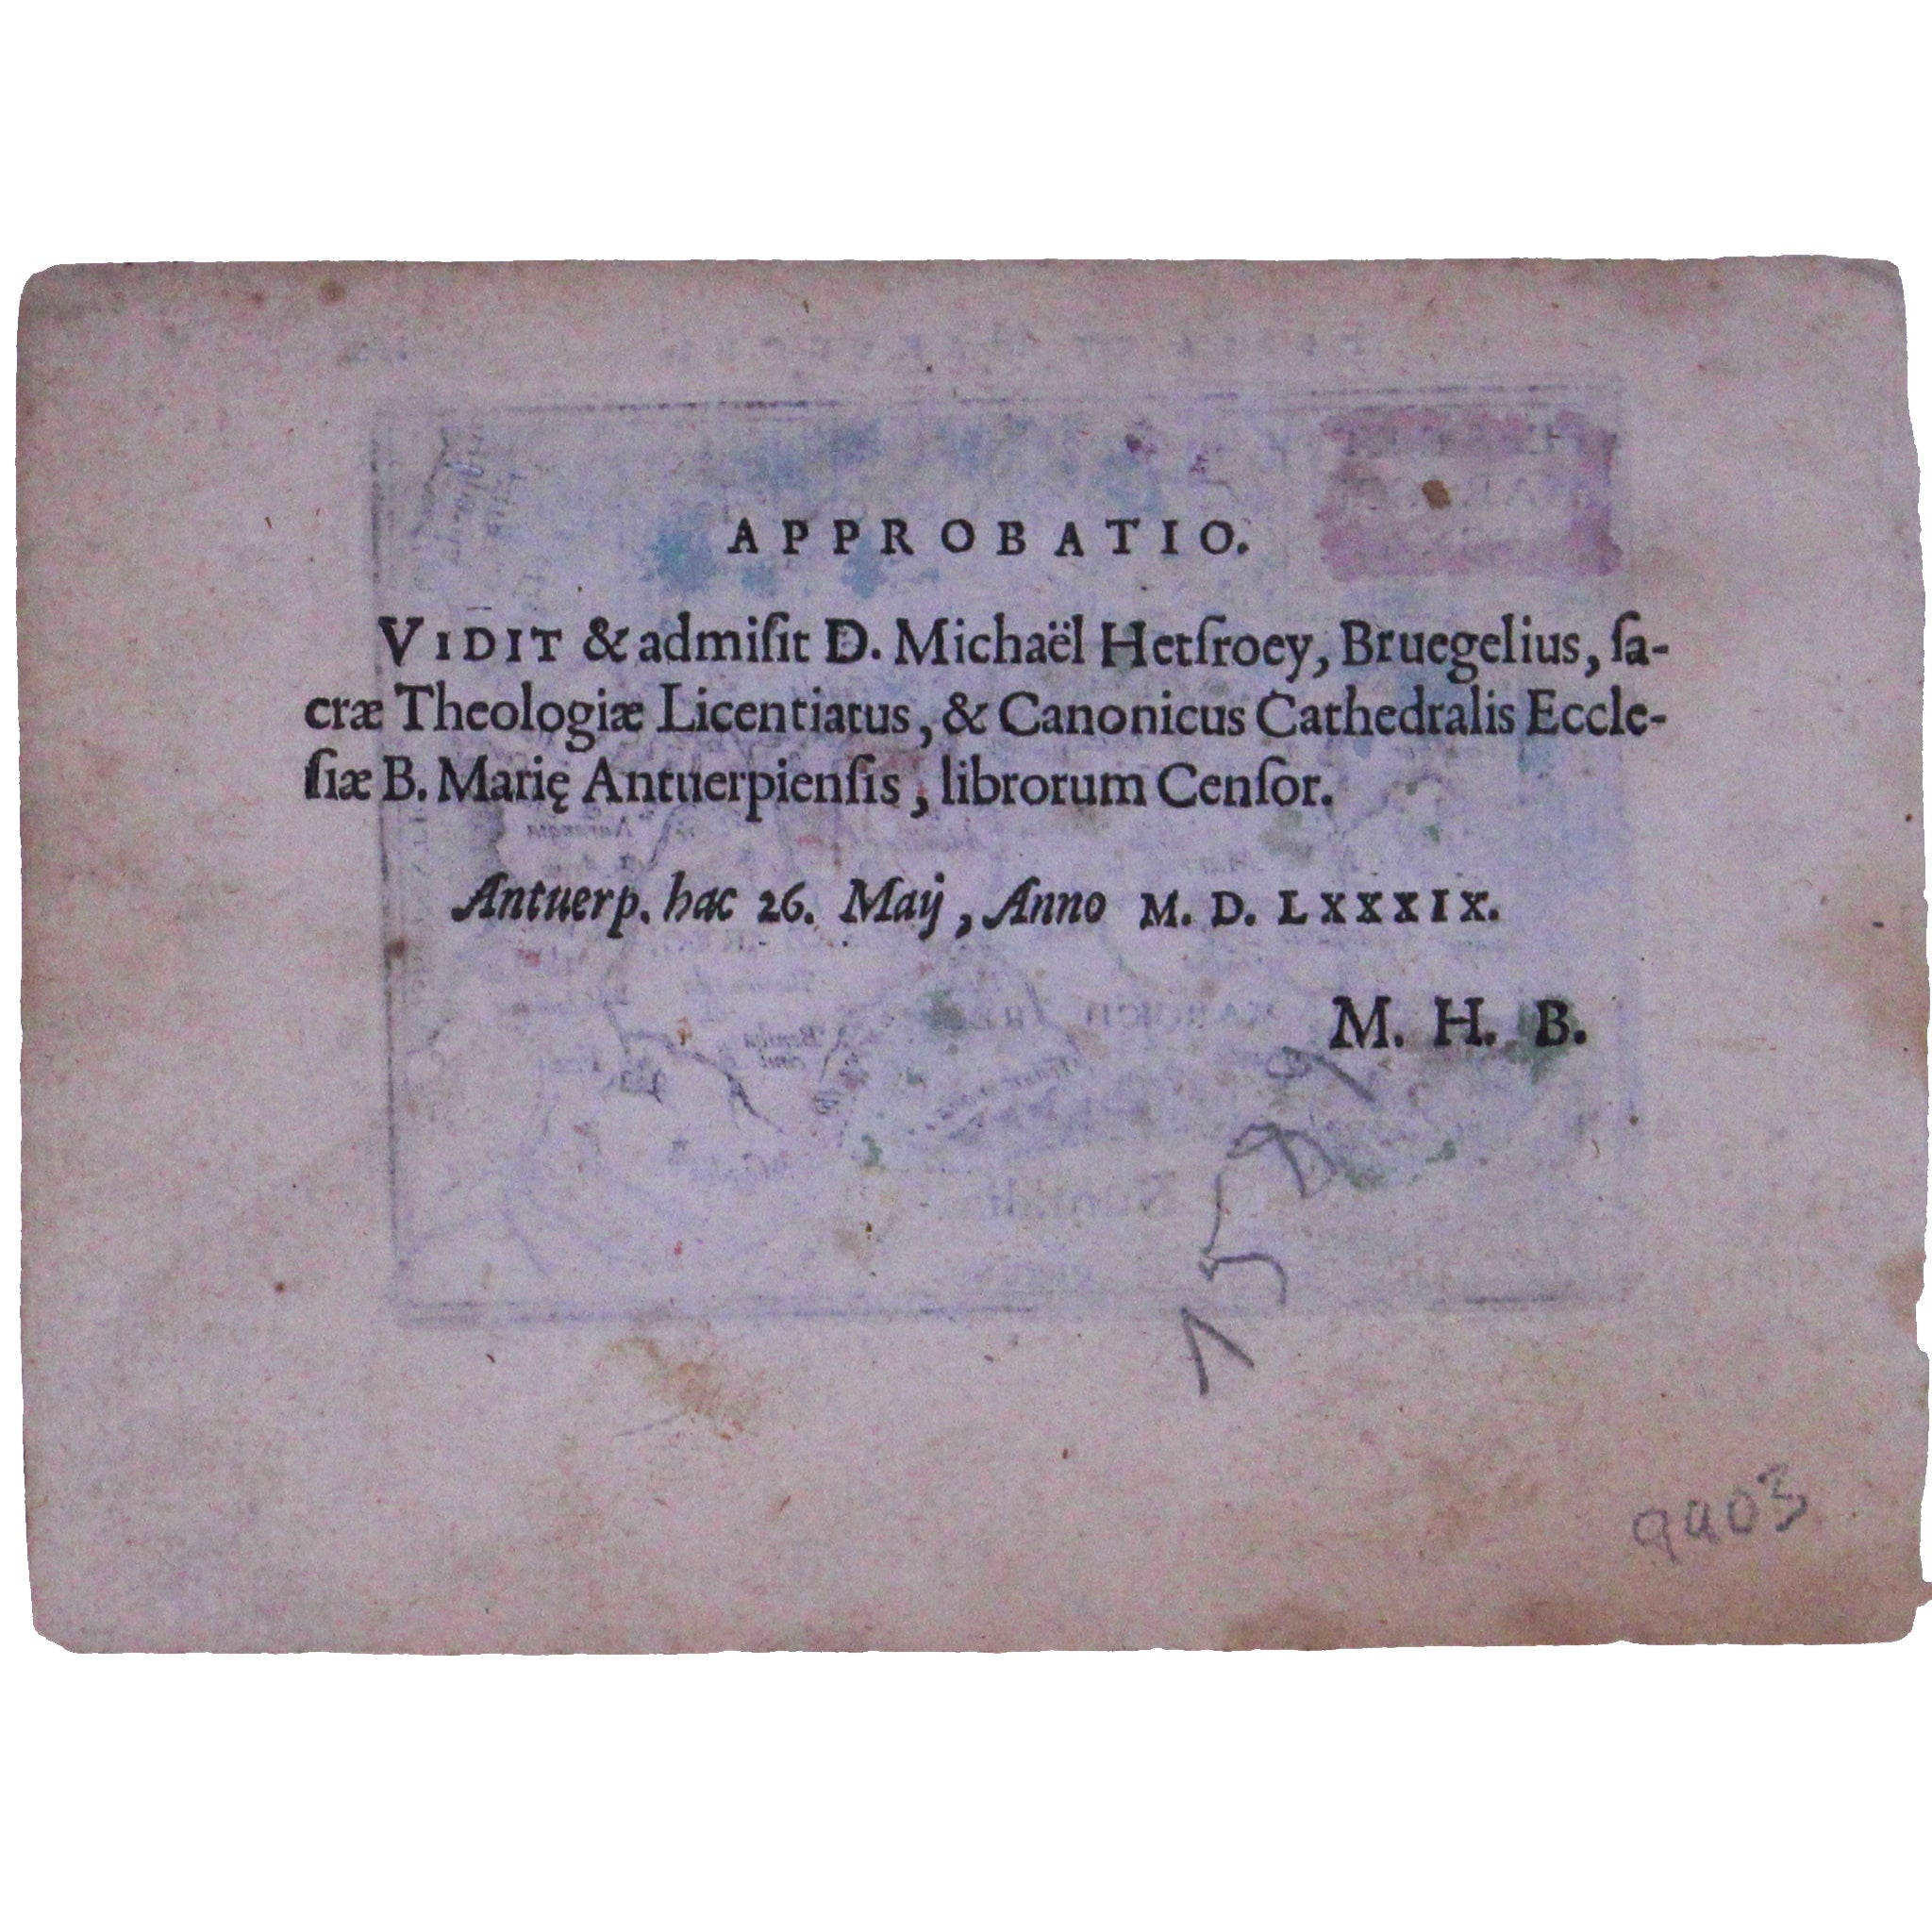 APPROBATIO.
VIDIT & admiſit D. Michaël Hetſroey, Bruegelius, ſa-
cræ Theologiæ Licentiatus, & Canonicus Cathedralis Eccle-
ſiæ B. Marię Antuerpienſis, librorum Cenſor.
Antuerp. hac 26. Maij, Anno M. D. LXXXIX.
M. H. B.
1589
9903